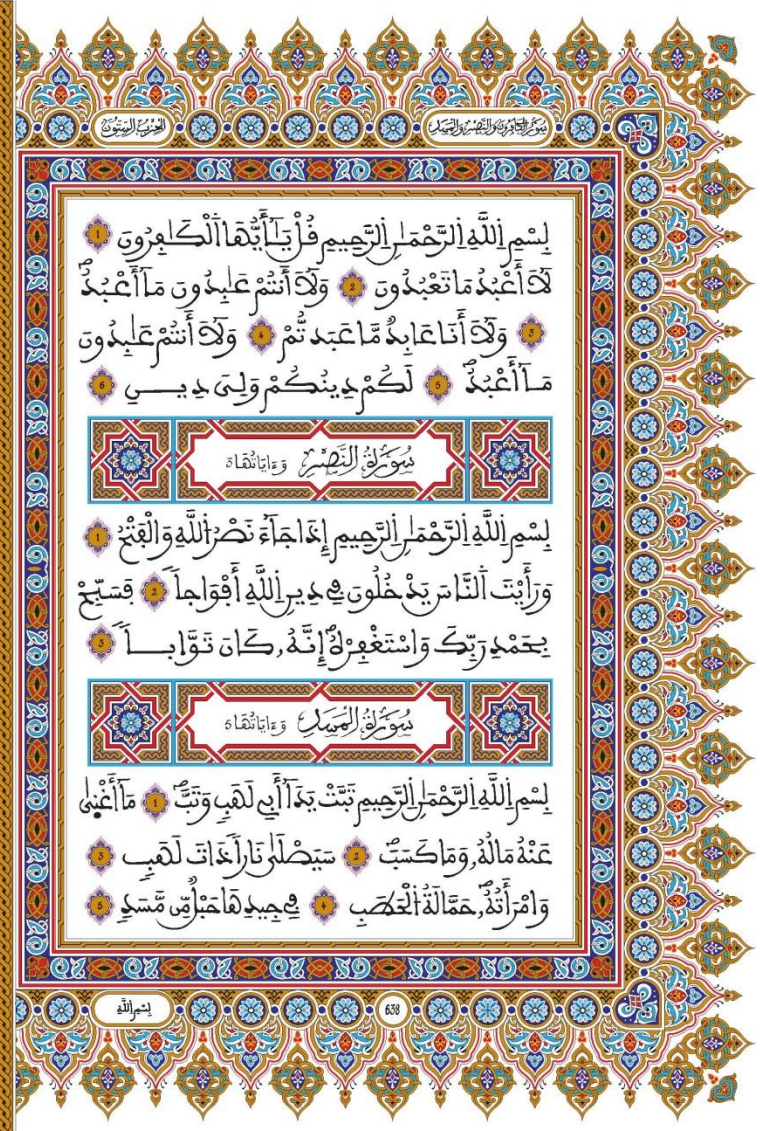 سورة الكافرون والنصر والمسد
الحزب الستون
بِسْمِ اِللَّهِ اِلرَّحْمَٰنِ اِلرَّحِيمِ قُلْ يَٰٓأَيُّهَا اَلْكَٰفِرُونَ 1
لَآ أَعْبُدُ مَا تَعْبُدُونَ 2 وَلَآ أَنتُمْ عَٰبِدُونَ مَآ أَعْبُدُ
3 وَلَآ أَنَا عَابِدٌ مَّا عَبَدتُّمْ 4 وَلَآ أَنتُمْ عَٰبِدُونَ
مَآ أَعْبُدُ 5 لَكُمْ دِينُكُمْ وَلِىَ دِينِ 6
سُورَةُ النَّصْرِ وَءَايَاتُهَا 3
بِسْمِ اِللَّهِ اِلرَّحْمَٰنِ اِلرَّحِيمِ إِذَا جَآءَ نَصْرُ اُللَّهِ وَالْفَتْحُ 1
وَرَأَيْتَ اَلنَّاسَ يَدْخُلُونَ فِي دِينِ اِللَّهِ أَفْوَاجاً 2 فَسَبِّحْ
بِحَمْدِ رَبِّكَ وَاسْتَغْفِرْهُ إِنَّهُۥ كَانَ تَوَّاباً 3
سُورَةُ الْمَسَدِ وَءَايَاتُهَا 5
بِسْمِ اِللَّهِ اِلرَّحْمَٰنِ اِلرَّحِيمِ تَبَّتْ يَدَآ أَبِي لَهَبٍ وَتَبَّ 1 مَآ أَغْنَىٰ
عَنْهُ مَالُهُۥ وَمَا كَسَبَ 2 سَيَصْلَىٰ نَاراً ذَاتَ لَهَبٍ 3
وَامْرَأَتُهُۥ حَمَّالَةُ اُلْحَطَبِ 4 فِي جِيدِهَا حَبْلٌ مِّن مَّسَدٍ 5
638
بِسْمِ اِللَّهِ